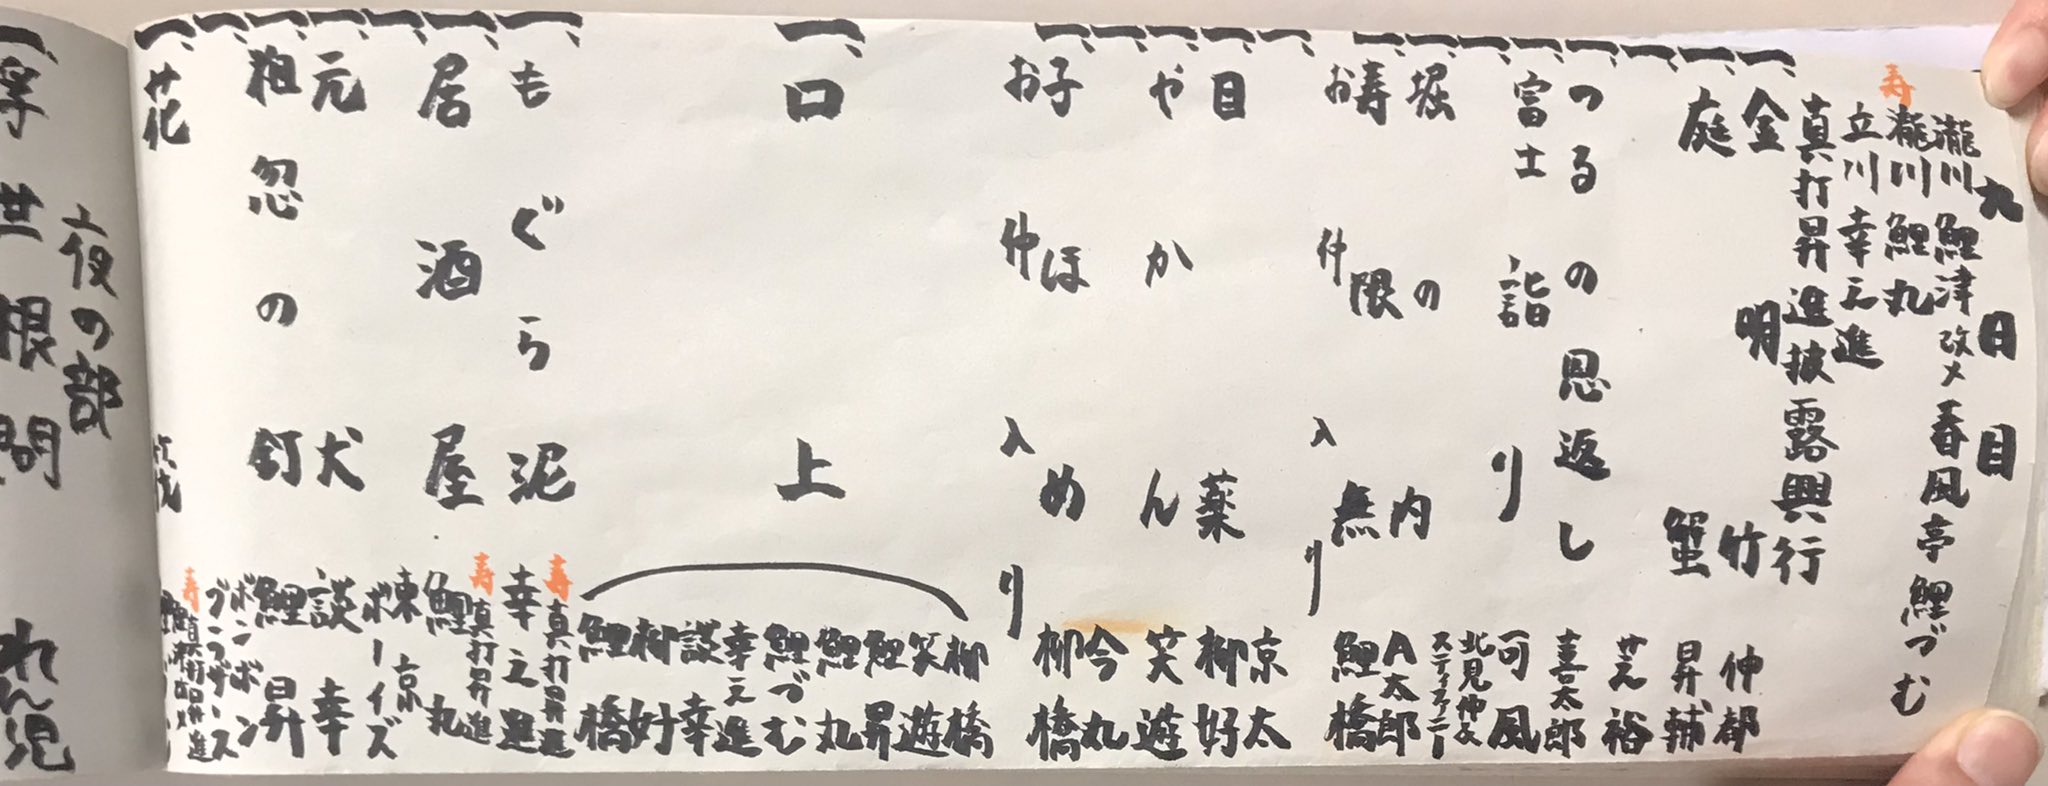 九日目
瀧川鯉津改メ春風亭鯉づむ
寿 瀧川鯉丸
立川幸之進
真打昇進披露興行
一、金明竹 伸都
一、庭蟹 昇輔
一、
一、つるの恩返し 喜太郎
一、富士詣り 可風
一、北見伸&ステファニー
一、堀の内 A太郎
一、寿限無 鯉橋
お仲入り
一、京太
一、目薬 柳好
一、やかん 笑遊
一、今丸
一、子ほめ 柳橋
お仲入り
一、口上
柳橋
笑遊
鯉昇
鯉丸
鯉づむ
幸之進
談幸
柳好
鯉橋
一、もぐら泥 寿 真打昇進 幸之進
一、居酒屋 寿 真打昇進 鯉丸
一、東京ボーイズ
一、元犬 談幸
一、粗忽の釘 鯉昇
一、ボンボンブラザース
一、花筏 寿 真打昇進
夜の部
一、浮世根問 れん児